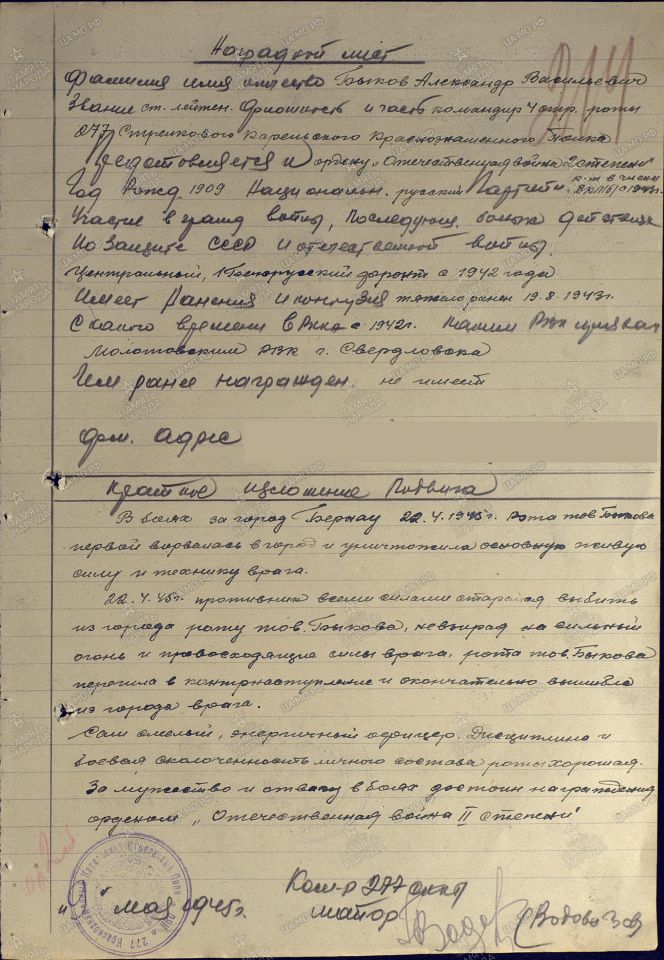 Наградной лист
Фамилия имя отчество Быков Александр Васильевич
Звание ст. лейтен. Должность и часть командир 4 стр. роты
277 Стрелкового Карельского Краснознаменного Полка
Редставляется к ордену „Отечественная война 2 степени"
Год Рожд 1909 Национальн. русский Партийн. к-т в члены ВКП(б) с 1943г.
Участие в гражд войны, Последующ. боевых действиях
По Защите СССР и отечественной войны.
Центральный, 1 Белорусский фронт с 1942 года
Имеет Ранения и контузия тяжело ранен 19.8.1943г.
С какого времени в РККА с 1942г. Каким РВК призван
Молотовским РВК г. Свердловска
Чем ранее награжден. не имеет
дом. адрес
Краткое изложение Подвига
В боях за город Бернау 22.4.1945г. рота тов. Быкова
первой ворвалась в город и уничтожила основную живую
силу и технику врага.
22.4.45г. противник всеми силами старался выбить
из города роту тов. Быкова, невзирая на сильный
огонь и превосходящие силы врага, рота тов. Быкова
перешла в контрнаступление и окончательно вышибла
из города врага.
Сам смелый, энергичный офицер. Дисциплина и
боевая сколоченность личного состава роты хорошая.
За мужество и отвагу в боях достоин награждения
орденом „Отечественная война II степени"
Ком-р 277 скп
" мая 1945г. майор Водовозов